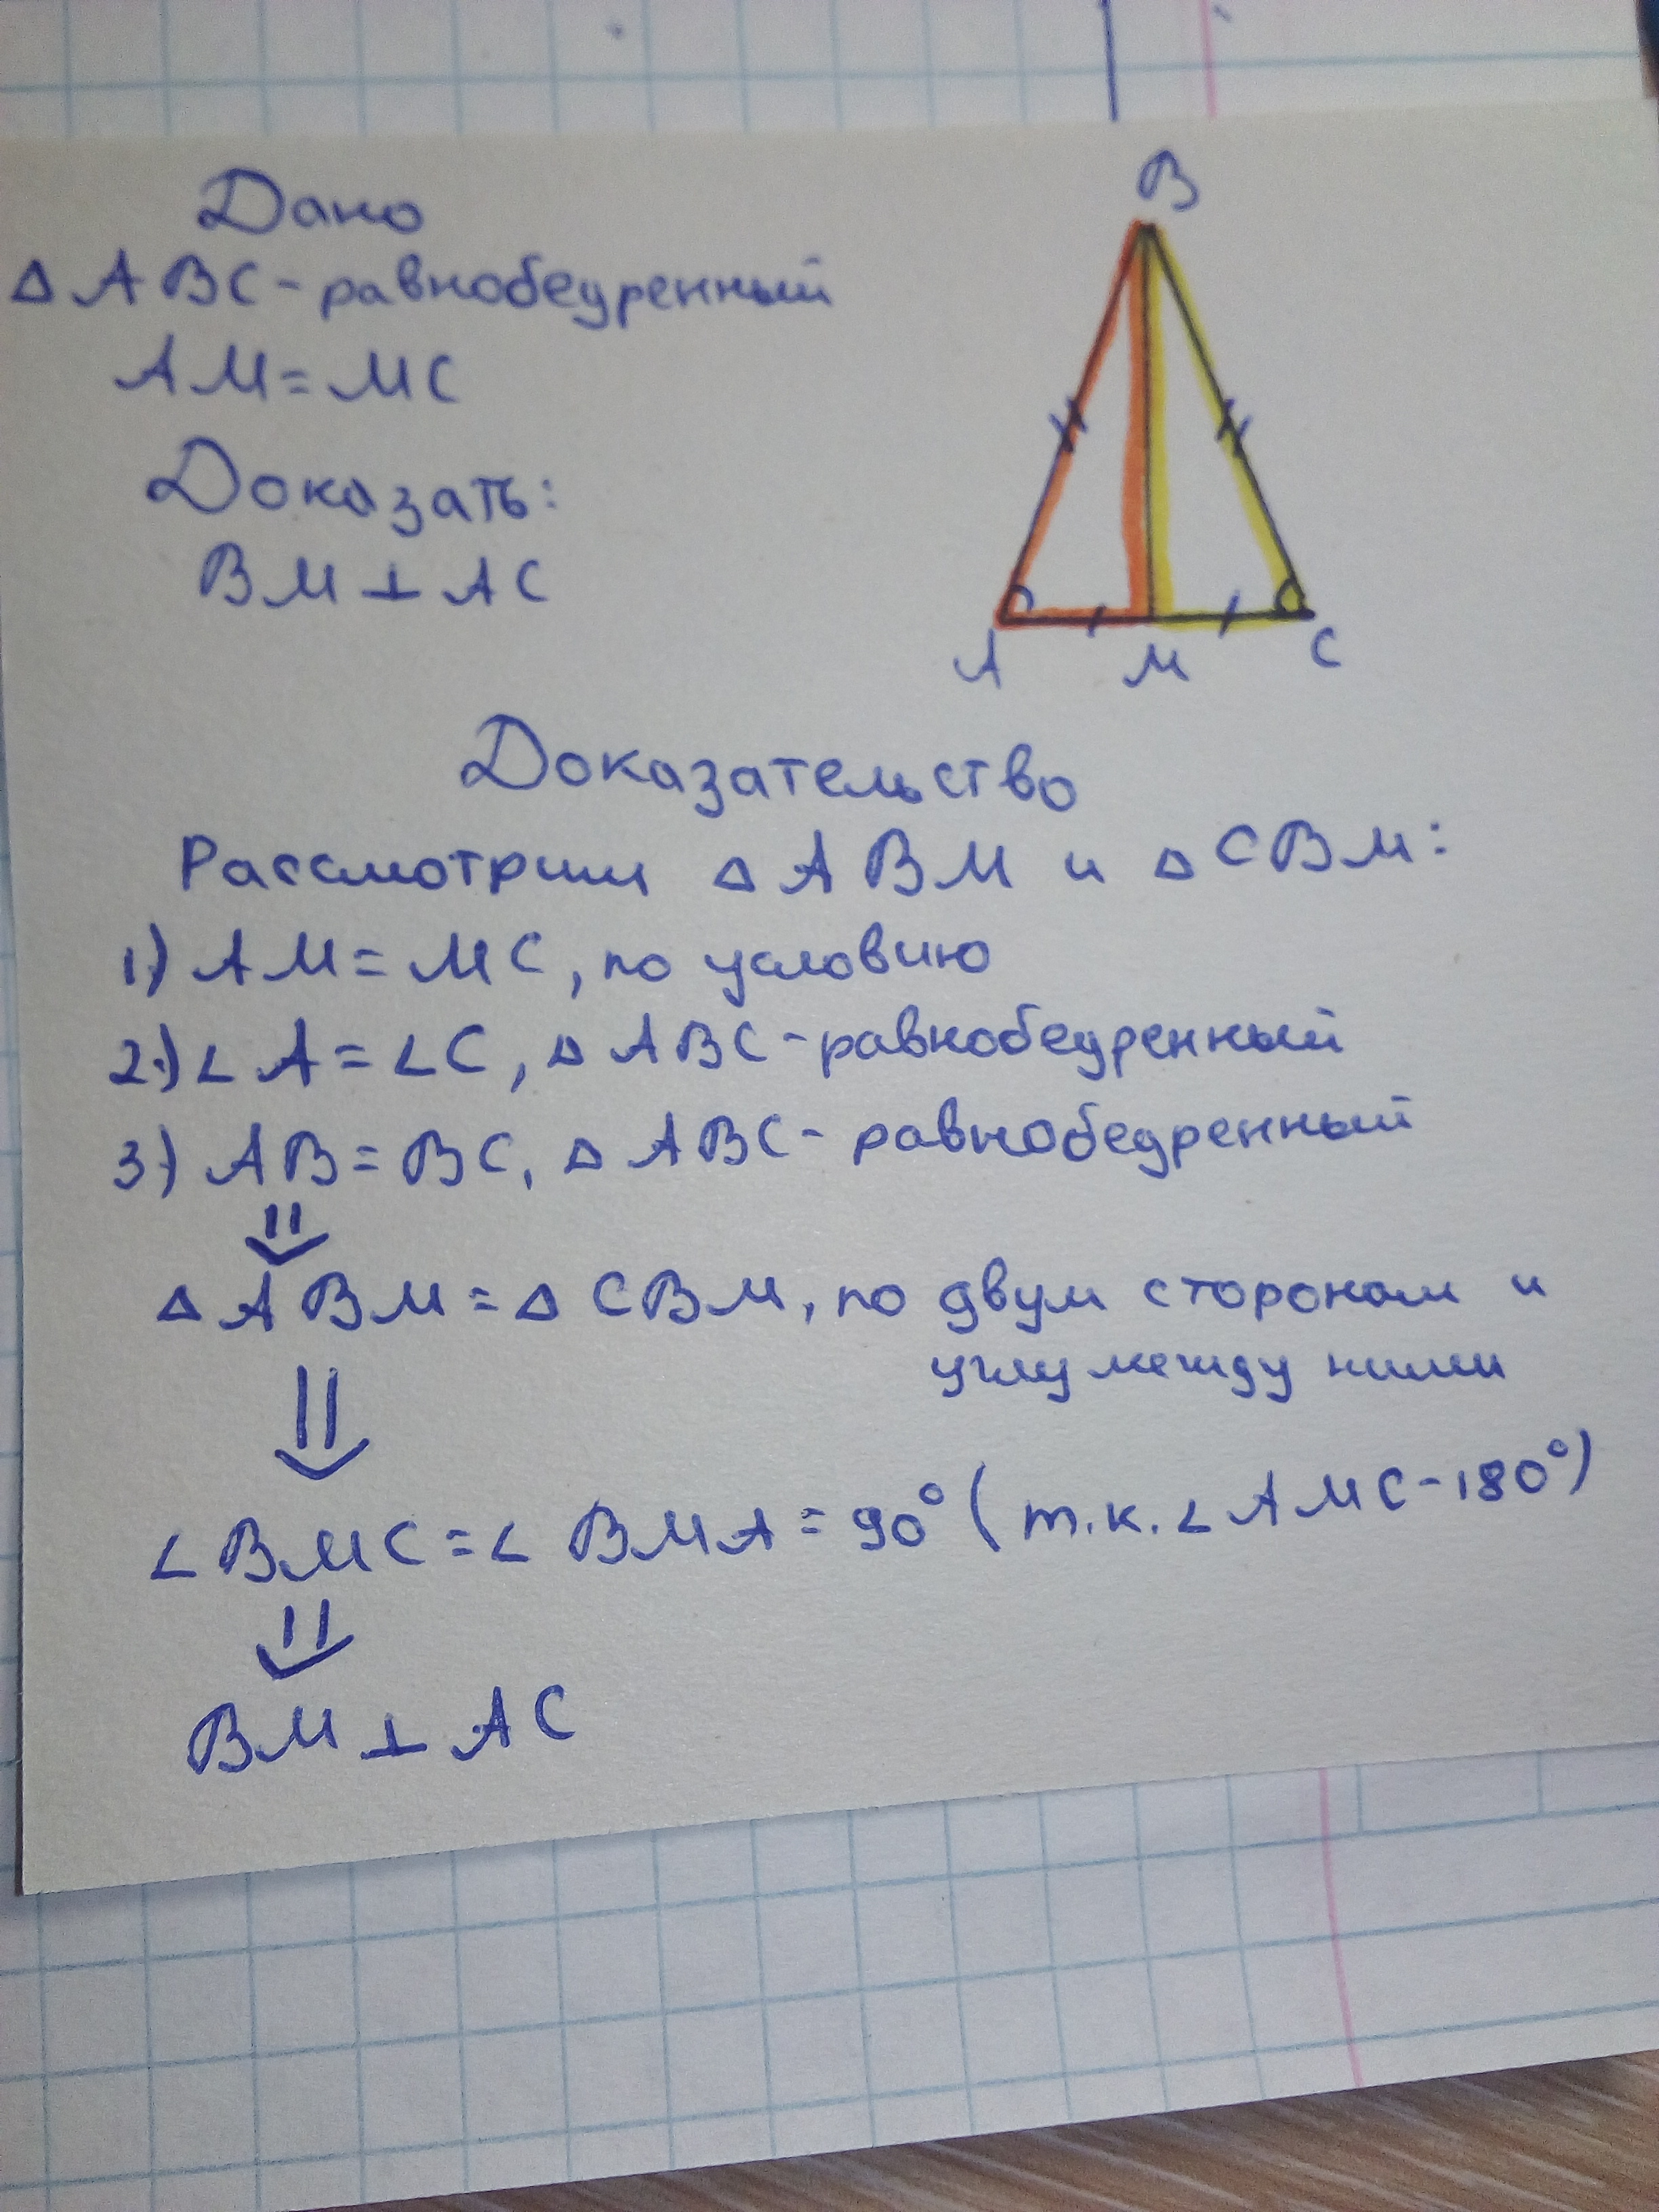 Дано
△ABC-равнобедренный
AM=MC
Доказать:
BM⊥AC
B
A
M
C
Доказательство
Рассмотрим △ABM и △CBM:
1) AM=MC, по условию
2) ∠A=∠C, △ABC-равнобедренный
3) AB=BC, △ABC-равнобедренный
⇓
△ABM=△CBM, по двум сторонам и
углу между ними
⇓
∠BMC=∠BMA=90° (т.к. ∠AMC-180°)
⇓
BM⊥AC